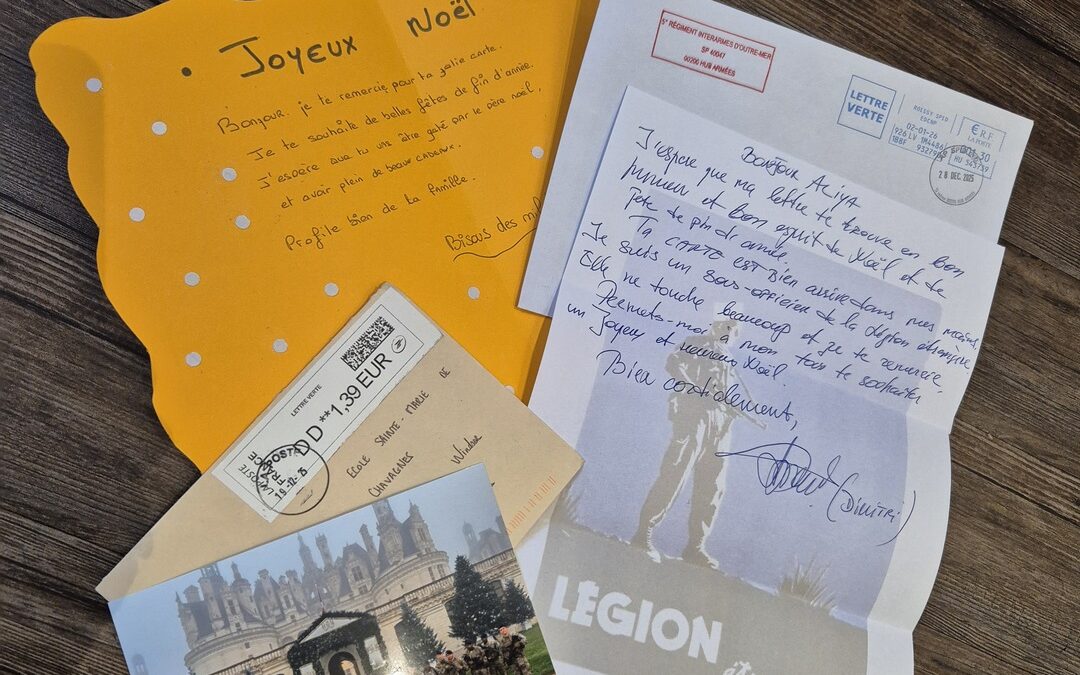 Joyeux Noël
Bonjour. je te remercie pour ta jolie carte.
Je te souhaite de belles fêtes de fin d'année.
J'espère que tu vas être gaté par le père noël,
et avoir plein de beaux cadeaux.
Profite bien de ta famille.
Bisous des
5° RÉGIMENT INTERARMES D'OUTRE-MER
SP 40047
00200 HUB ARMÉES
LETTRE
VERTE
ROISSY SPID
EDCNP
02-01-26
€ R.F.
LA POSTE
28 DEC. 2025
Bonjour Aliya
J'espère que ma lettre te trouve en bon
et bon esprit de Noël et de
fête de fin de année.
Ta CARTE est bien arrivé dans mes mains.
Je suis un sous-officier de la légion étrangère
Elle me touche beaucoup et je te remercie.
Permets-moi à mon tous te souhaiter
un Joyeux et heureux Noël.
Bien cordialement,
(Dimitri)
LÉGION
LETTRE VERTE
D**1,39 EUR
LA POSTE
FRANCE
19-12-25
ECOLE SAINTE-MARIE DE
CHAVAGNES
Windsor